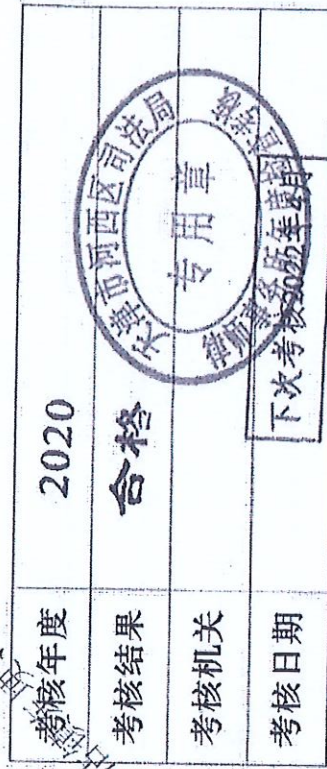 考核年度 2020
考核结果 合格
考核机关
考核日期
天津市河西区司法局
专用章
律师事务所年度检查考核
下次考核2022年5月